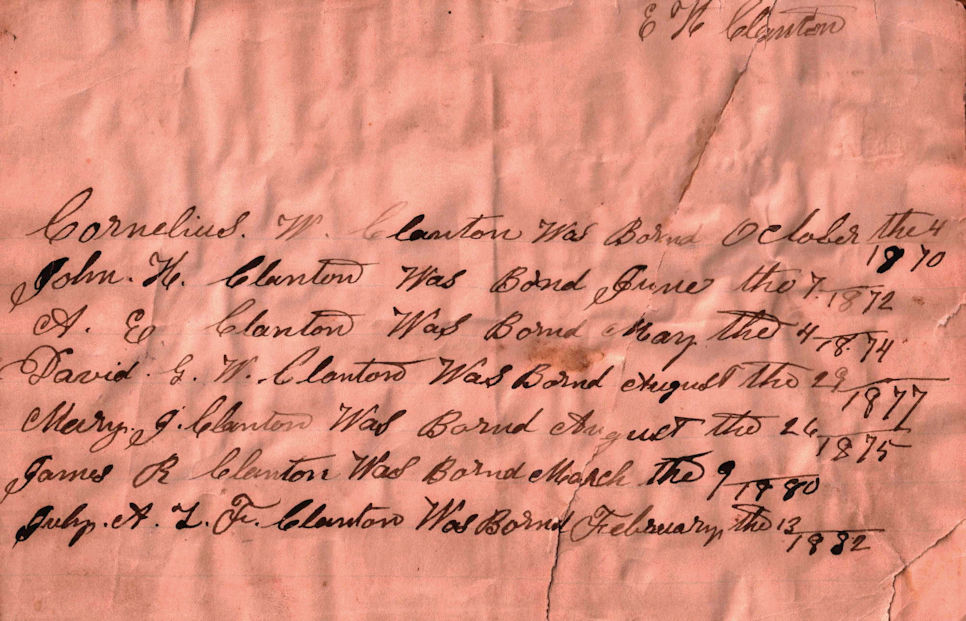 E H Clanton
Cornelius. W. Clanton Was Bornd October the 4
1870
John. H. Clanton Was Bornd June the 7. 1872
A. E Clanton Was Bornd May the 4 1874
David. G. W. Clanton Was Bornd August the 29 1877
Mary. J. Clanton Was Bornd August the 26 1875
James R Clanton Was Bornd March the 9 1880
A. L. F. Clanton Was Bornd February the 13 1882